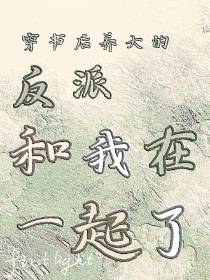 穿书后养大的
反派
和我在
一起了